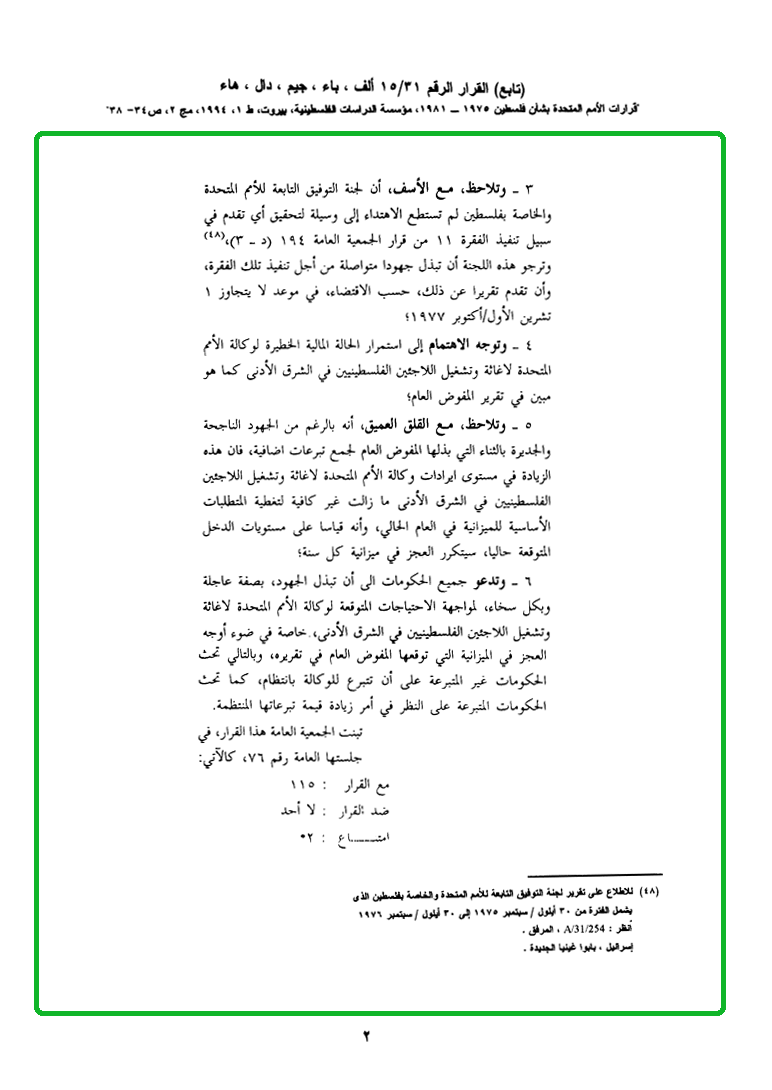 (تابع) القرار الرقم ١٥/٣١ ألف ، باء ، جيم ، دال ، هاء
"قرارات الأمم المتحدة بشأن فلسطين ١٩٧٥ – ١٩٨١، مؤسسة الدراسات الفلسطينية، بيروت، ط ١، ١٩٩٤، مج ٢، ص٣٤- ٣٨"
٣ ـ وتلاحظ، مع الأسف، أن لجنة التوفيق التابعة للأمم المتحدة
والخاصة بفلسطين لم تستطع الاهتداء إلى وسيلة لتحقيق أي تقدم في
سبيل تنفيذ الفقرة ١١ من قرار الجمعية العامة ١٩٤ (د ـ ٣)،(٤٨)
وترجو هذه اللجنة أن تبذل جهودا متواصلة من أجل تنفيذ تلك الفقرة،
وأن تقدم تقريرا عن ذلك، حسب الاقتضاء، في موعد لا يتجاوز ١
تشرين الأول/أكتوبر ١٩٧٧؛
٤ ـ وتوجه الاهتمام إلى استمرار الحالة المالية الخطيرة لوكالة الأمم
المتحدة لاغاثة وتشغيل اللاجئين الفلسطينيين في الشرق الأدنى كما هو
مبين في تقرير المفوض العام؛
٥ ـ وتلاحظ، مع القلق العميق، أنه بالرغم من الجهود الناجحة
والجديرة بالثناء التي بذلها المفوض العام لجمع تبرعات اضافية، فان هذه
الزيادة في مستوى ايرادات وكالة الأمم المتحدة لاغاثة وتشغيل اللاجئين
الفلسطينيين في الشرق الأدنى ما زالت غير كافية لتغطية المتطلبات
الأساسية للميزانية في العام الحالي، وأنه قياسا على مستويات الدخل
المتوقعة حاليا، سيتكرر العجز في ميزانية كل سنة؛
٦ ـ وتدعو جميع الحكومات الى أن تبذل الجهود، بصفة عاجلة
وبكل سخاء، لمواجهة الاحتياجات المتوقعة لوكالة الأمم المتحدة لاغاثة
وتشغيل اللاجئين الفلسطينيين في الشرق الأدنى، خاصة في ضوء أوجه
العجز في الميزانية التي توقعها المفوض العام في تقريره، وبالتالي تحث
الحكومات غير المتبرعة على أن تتبرع للوكالة بانتظام، كما تحث
الحكومات المتبرعة على النظر في أمر زيادة قيمة تبرعاتها المنتظمة.
تبنت الجمعية العامة هذا القرار، في
جلستها العامة رقم ٧٦، كالآتي:
مع القرار : ١١٥
ضد القرار : لا أحد
امتـــــاع : ٢*
(٤٨) للاطلاع على تقرير لجنة التوفيق التابعة للأمم المتحدة والخاصة بفلسطين الذى
يشمل الفترة من ٣٠ أيلول / سبتمبر ١٩٧٥ إلى ٣٠ أيلول / سبتمبر ١٩٧٦
أنظر : A/31/254 ، المرفق .
إسرائيل ، بابوا غينيا الجديدة .
٢